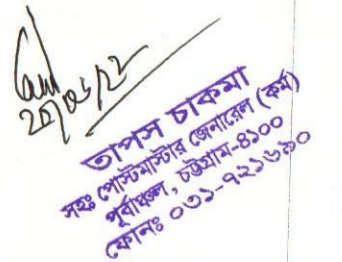 তাপস চাকমা
সহঃ পোস্টমাস্টার জেনারেল (কর্ম)
পূর্বাঞ্চল, চট্টগ্রাম-৪১০০
ফোনঃ ০৩১-৭২১৬৯০